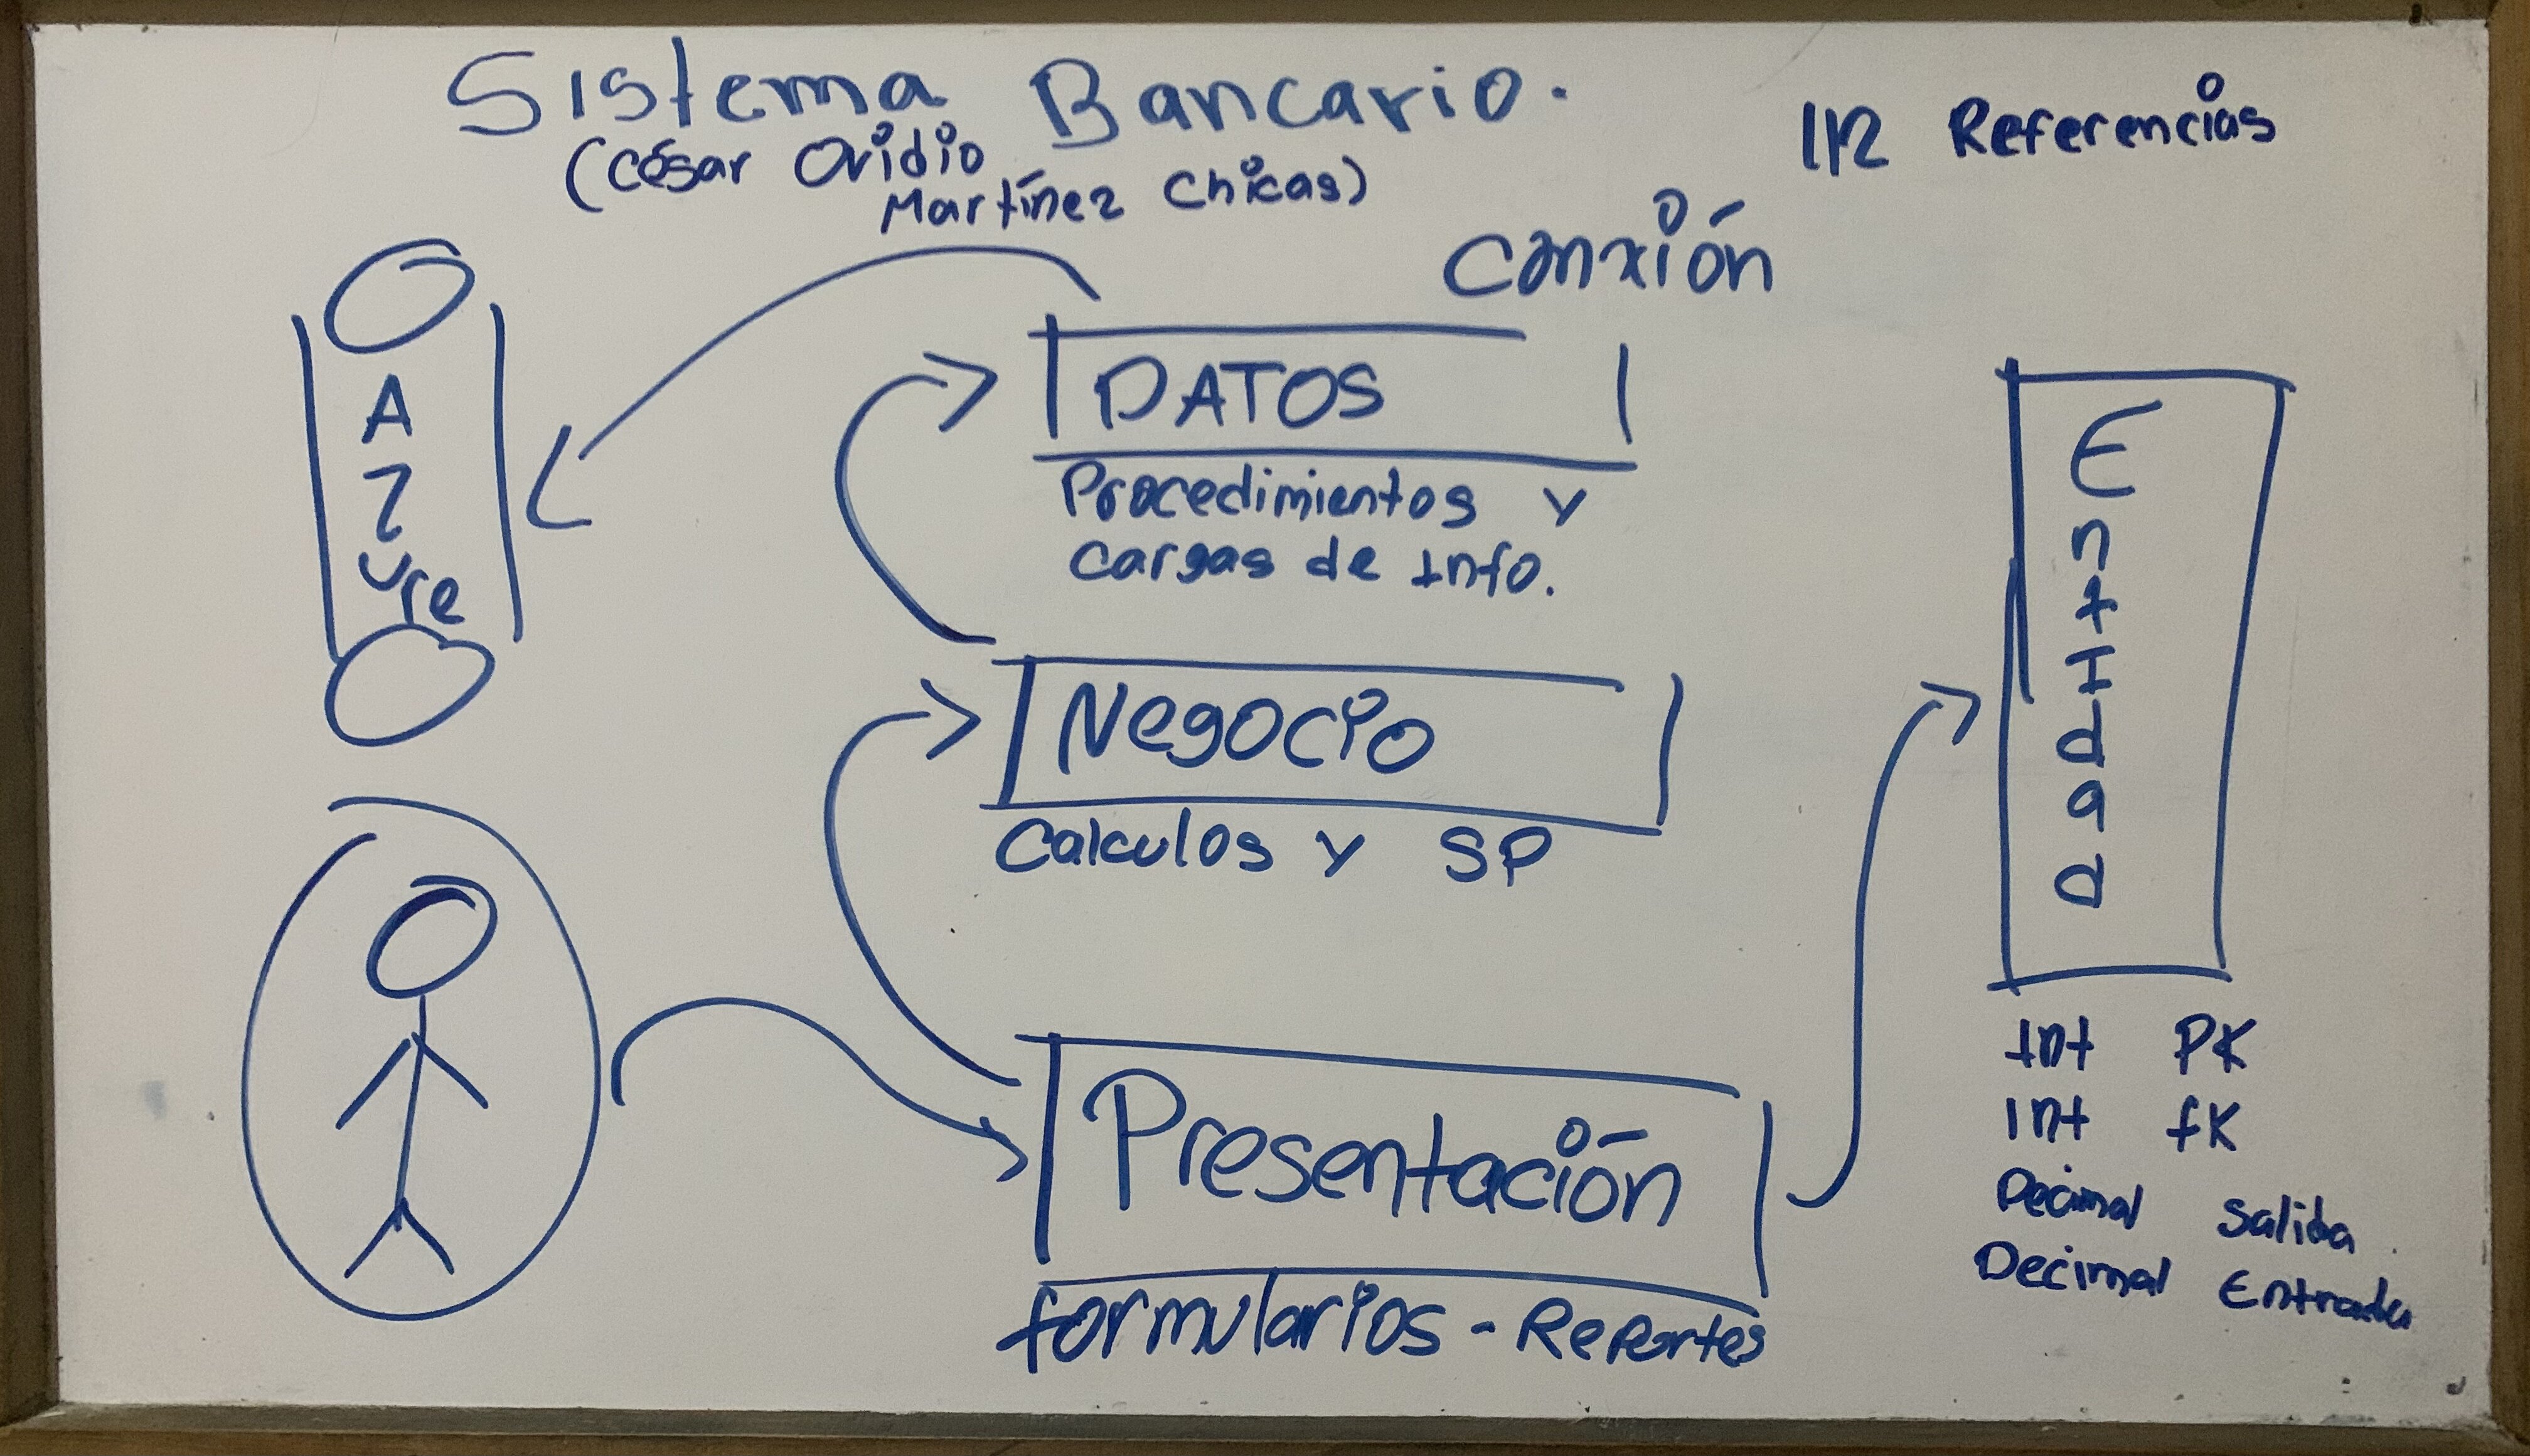 Sistema Bancario.
(César Ovidio
Martínez Chicas)
1/2 Referencias
Conxión
Azure
DATOS
Procedimientos y
cargas de Info.
Negocio
Calculos y SP
Presentación
formularios - Reportes
Entidad
Int PK
Int fK
Decimal Salida
Decimal Entrada